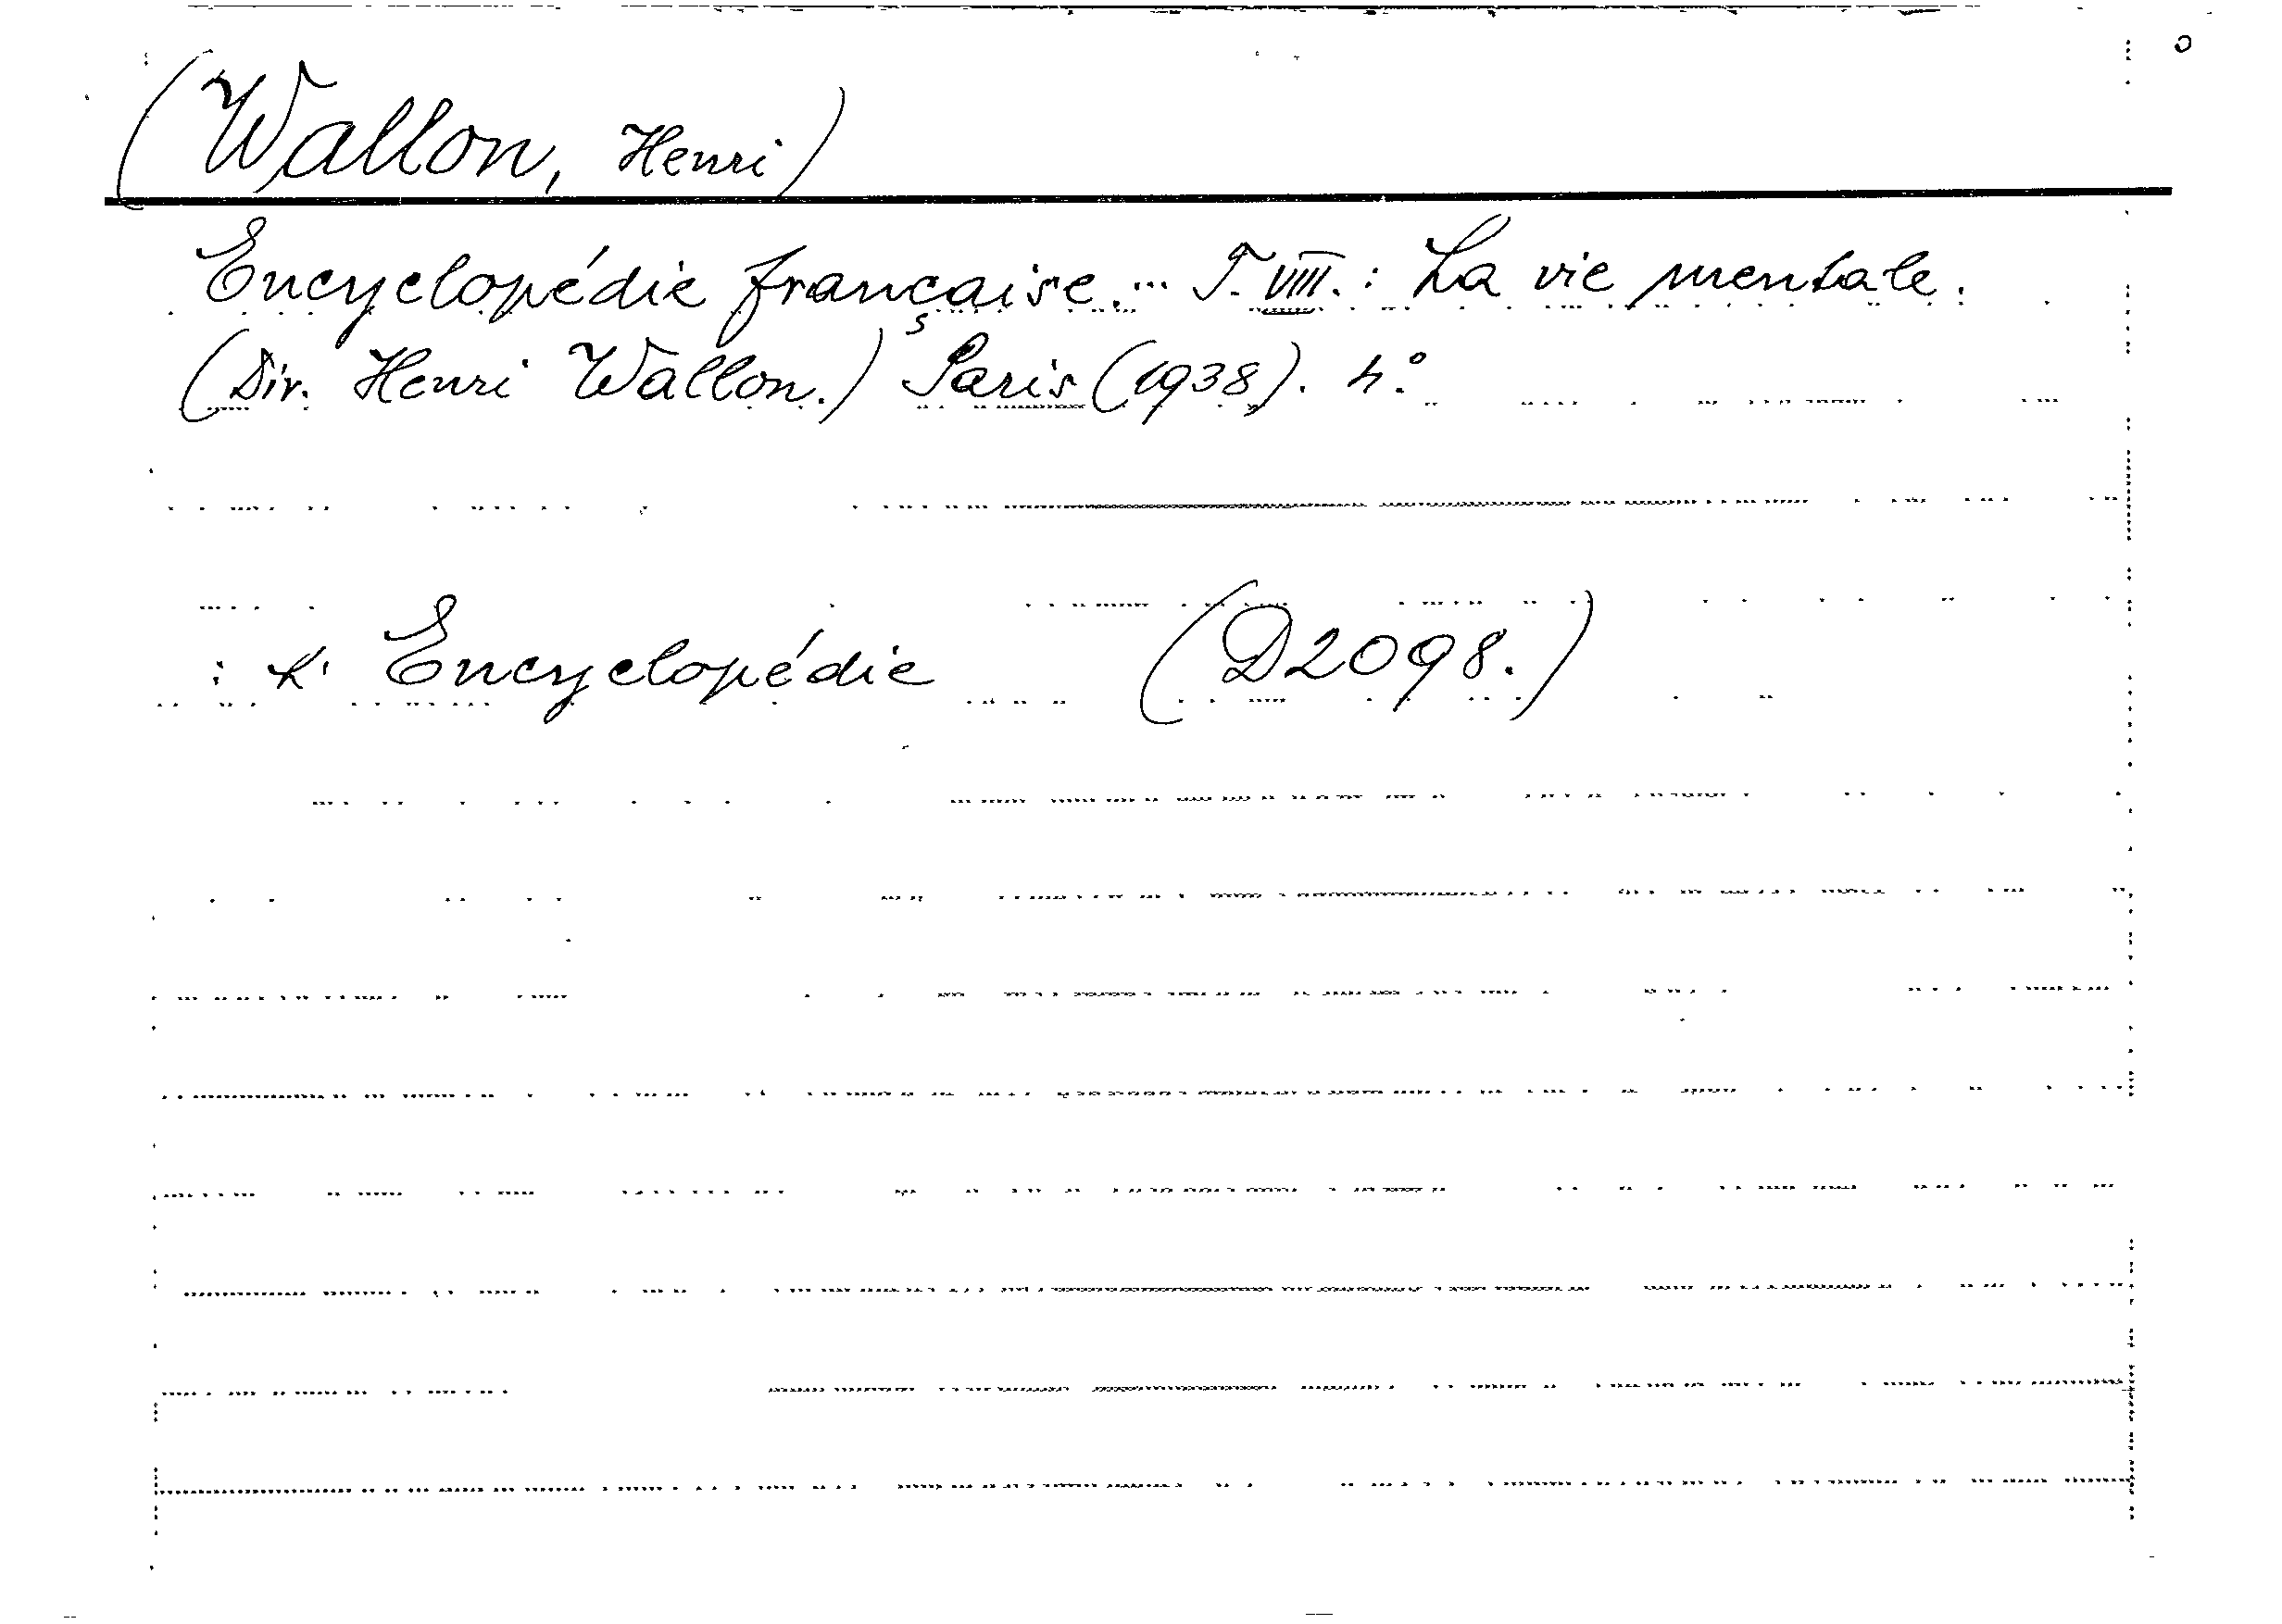 (Wallon, Henri)
Encyclopédie française.... T. VIII. : La vie mentale.
(Dir. Henri Wallon.) Paris (1938). 4:o
: Encyclopédie (D2098.)